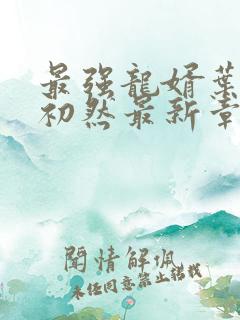 最強龍婿葉
初然最新章
聞情解佩
未经同意禁止转载